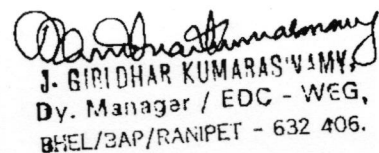 J. GIRIDHAR KUMARASWAMY,
Dy. Manager / EDC - WEG,
BHEL/BAP/RANIPET - 632 406.